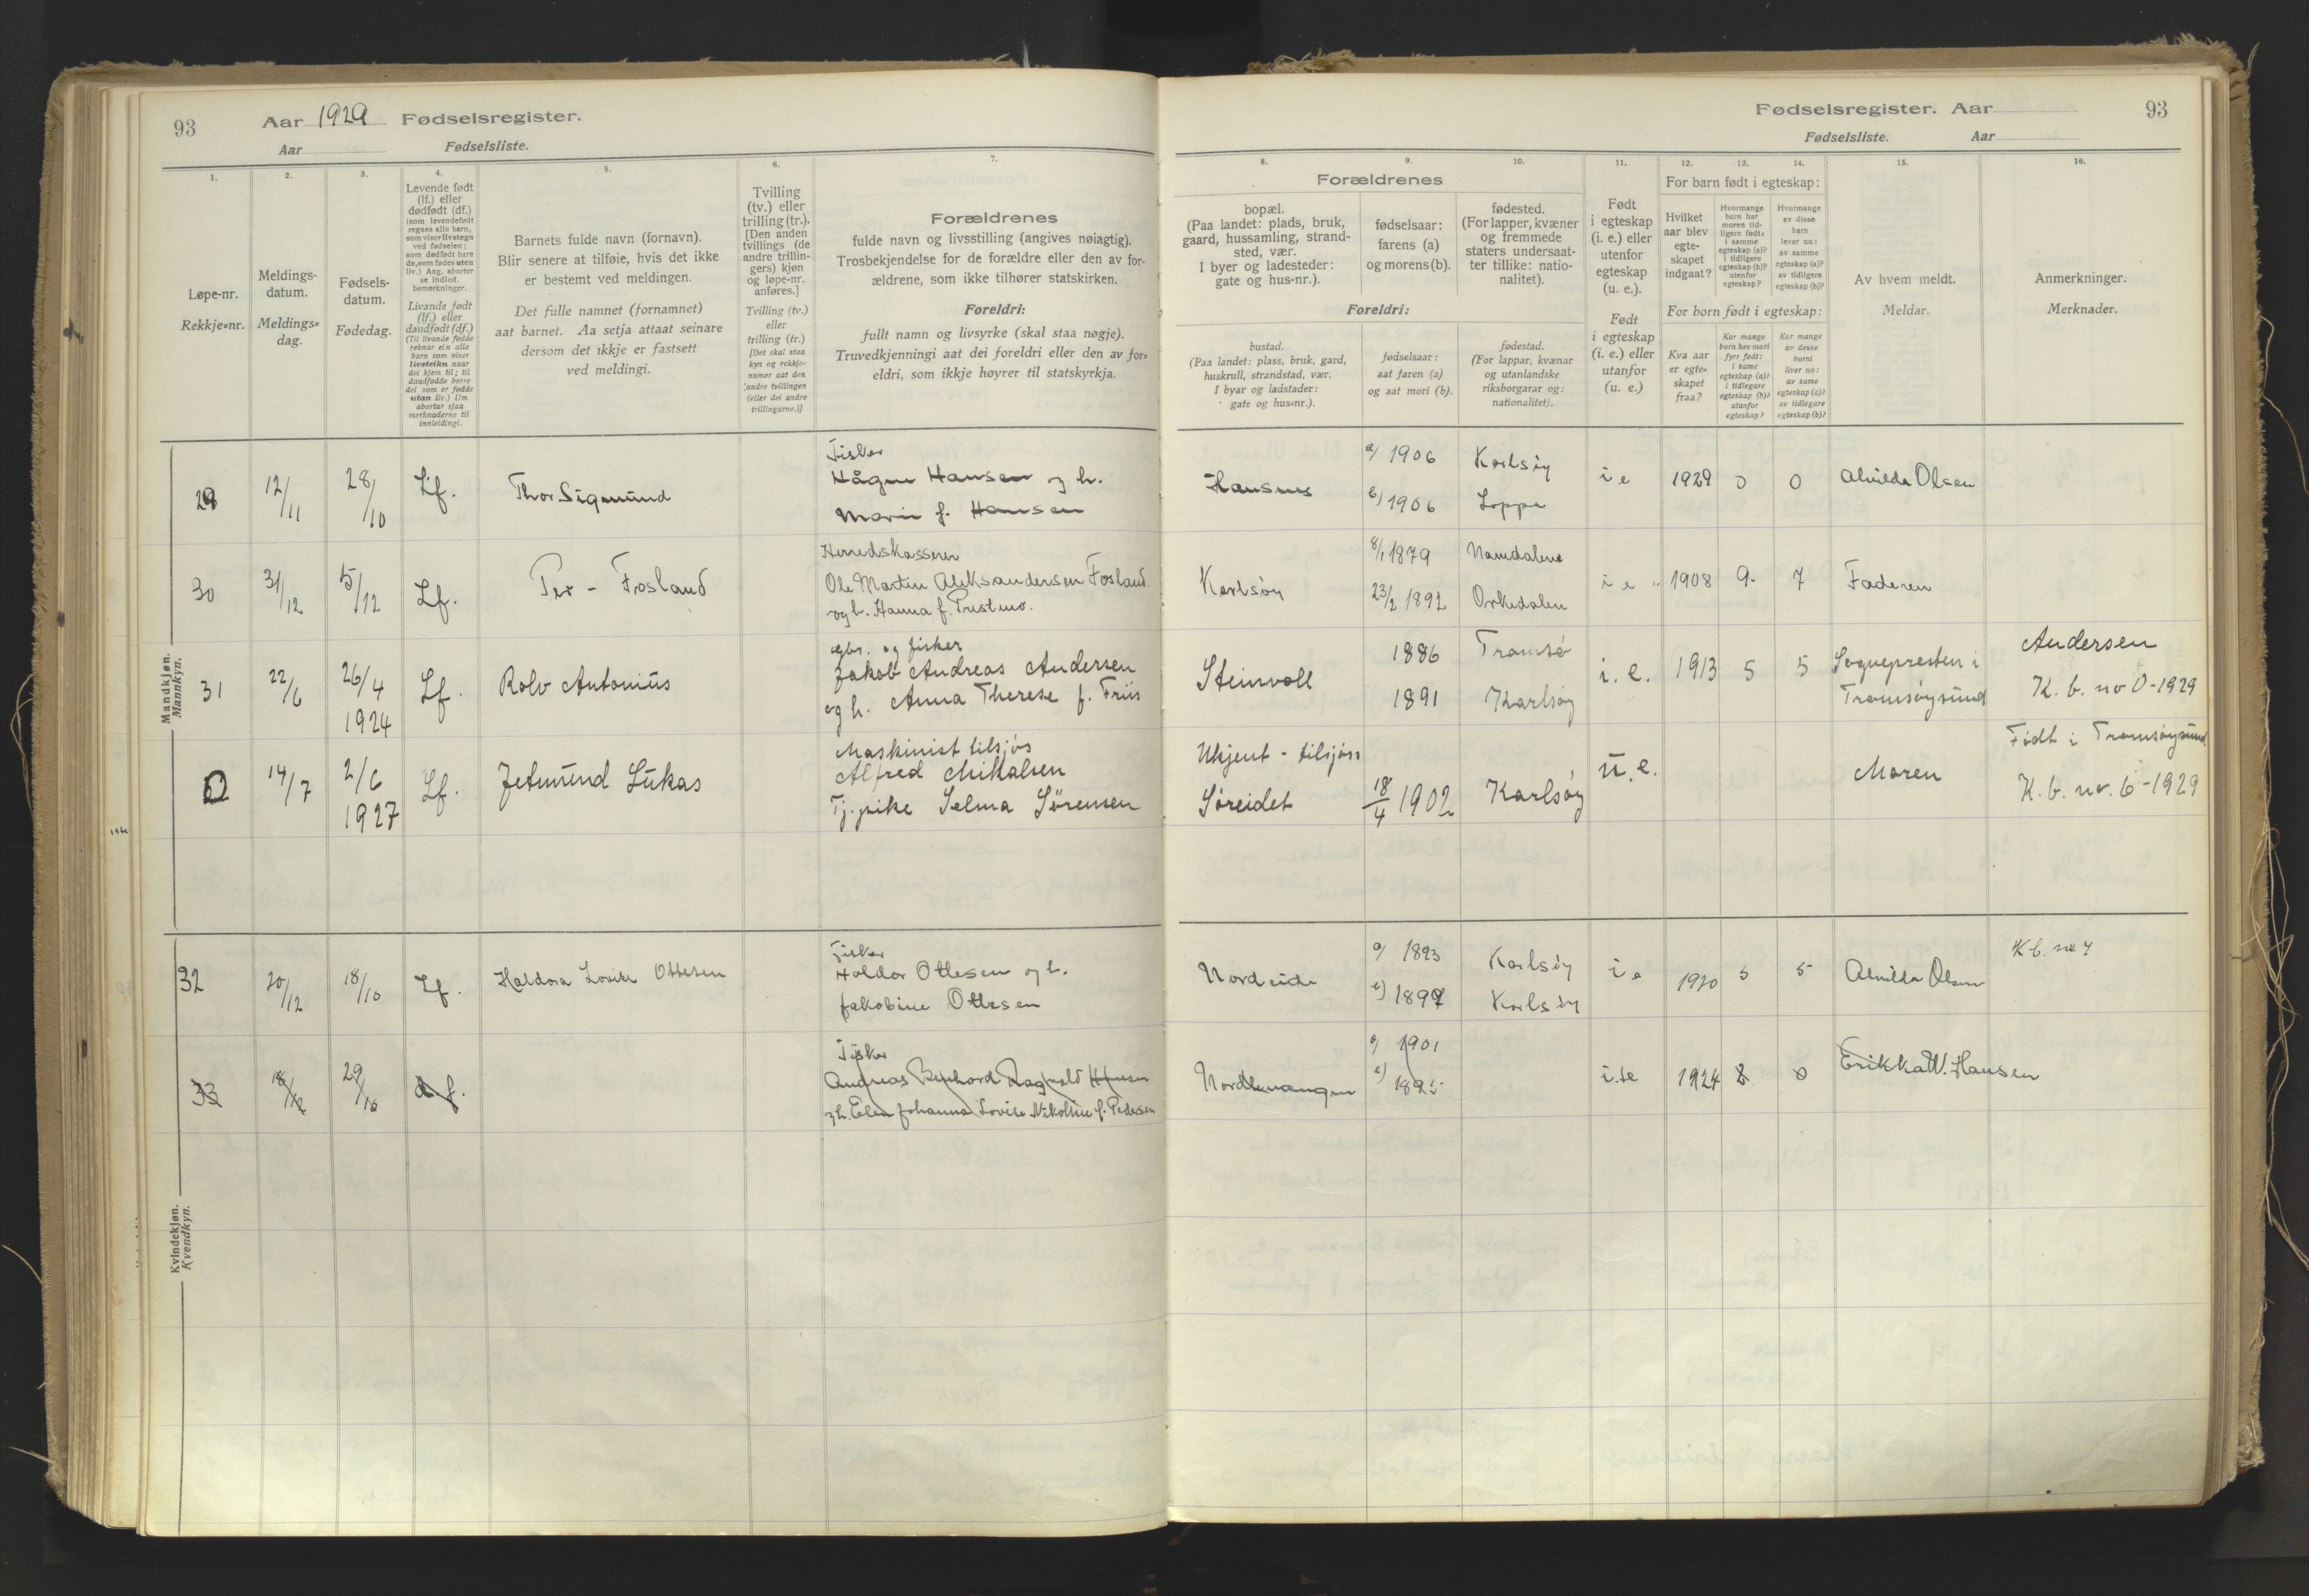 93
Aar 1929 Fødselsregister.
Aar Fødselsliste.
1.
2.
3.
4.
5.
6.
7.
Løpe-nr.
Rekkje=nr.
Meldings-
datum.
Meldings=
dag.
Fødsels-
datum.
Fødedag.
Levende født
(lf.) eller
dødfødt (df.)
(som levendefødt
regnes alle barn,
som viser livstegn
ved fødselen;
som dødfødt bare
de, som fødes uten
liv.) Ang. aborter
se indled.
bemerkninger.
Livande født
(lf.) eller
daudfødt (df.)
(Til livande fødde
reknar ein alle
barn som viser
livsteikn naar
dei kjem til; til
daudfødde berre
dei som er fødde
utan liv.) Um
abortar sjaa
merknaderne til
innleidingi.
Barnets fulde navn (fornavn).
Blir senere at tilføie, hvis det ikke
er bestemt ved meldingen.
Det fulle namnet (fornamnet)
aat barnet. Aa setja attaat seinare
dersom det ikkje er fastsett
ved meldingi.
Tvilling
(tv.) eller
trilling (tr.).
[Den anden
tvillings (de
andre trillin-
gers) kjøn
og løpe-nr.
anføres.]
Tvilling (tv.)
eller
trilling (tr.)
[Det skal staa
kyn og rekkje-
numer aat den
andre tvillingen
(eller dei andre
trillingarne.)]
Forældrenes
fulde navn og livsstilling (angives nøiagtig).
Trosbekjendelse for de forældre eller den av for-
ældrene, som ikke tilhører statskirken.
Foreldri:
fullt namn og livsyrke (skal staa nøgje).
Truvedkjenningi aat dei foreldri eller den av for=
eldri, som ikkje høyrer til statskyrkja.
Mandkjøn.
Mannkyn.
29 12/11 28/10 Lf. Thor Sigmund
Fisker
Hågen Hansen og h.
Marie f. Hansen
30 31/12 5/12 Lf. Per - Fosland
Herredskasserer
Ole Martin Aleksandersen Fosland
og h. Hanna f. Prestmo.
31 22/6 26/4 1924 Lf. Rolv Antonius
gbr. og fisker
Jakob Andreas Andersen
og h. Anna Therese f. Friis
0 14/7 2/6 1927 Lf. Jetmund Lukas
Maskinist tilsjøs
Alfred Mikalsen
Tj.pike Selma Sørensen
Kvindekjøn.
Kvendkyn.
32 20/12 18/10 Lf. Haldora Lovise Ottesen
Fisker
Haldor Ottesen og h.
Jakobine Ottesen
33 18/12 29/10 d f.
Fisker
Andreas Bernhard Ragnvald Hansen
og h. Elen Johanna Lovise Nikoline f. Pedersen
Fødselsregister. Aar 93
Fødselsliste. Aar
8.
9.
10.
11.
12.
13.
14.
15.
16.
Forældrenes
bopæl.
(Paa landet: plads, bruk,
gaard, hussamling, strand-
sted, vær.
I byer og ladesteder:
gate og hus-nr.).
fødselsaar:
farens (a)
og morens (b).
fødested.
(For lapper, kvæner
og fremmede
staters undersaat-
ter tillike: natio-
nalitet).
Foreldri:
bustad.
(Paa landet: plass, bruk, gard,
huskrull, strandstad, vær.
I byar og ladstader:
gate og hus=nr.).
fødselsaar:
aat faren (a)
og aat mori (b).
fødestad.
(For lappar, kvænar
og utanlandske
riksborgarar og:
nationalitet).
Født
i egteskap
(i. e.) eller
utenfor
egteskap
(u. e.).
Født
i egteskap
(i. e.) eller
utanfor
(u. e.)
For barn født i egteskap:
Hvilket
aar blev
egte-
skapet
indgaat?
Hvormange
barn har
moren tid-
ligere født:
i samme
egteskap (a)?
i tidligere
egteskap (b)?
utenfor
egteskap?
Hvormange
av disse
barn
lever nu:
av samme
egteskap (a)?
av tidligere
egteskap (b)?
For born født i egteskap:
Kva aar
er egte=
skapet
fraa?
Kor mange
born hev mori
fyrr født:
i same
egteskap (a)?
i tidlegare
egteskap (b)?
utanfor
egteskap?
Kor mange
av desse
borni
liver no:
av same
egteskap (a)?
av tidlegare
egteskap (b)?
Av hvem meldt.
Meldar.
Anmerkninger.
Merknader.
Hansnes a) 1906 Karlsøy i e 1929 0 0 Alvilda Olsen
b) 1906 Loppa
Karlsøy 8/1 1879 Namdalene i e 1908 9. 7 Faderen
23/2 1892 Orkedalen
Steinvoll 1886 Tromsø i. e. 1913 5 5 Sognepresten i
Tromsøysund
1891 Karlsøy
Andersen
K. b. nr 0 - 1929
Ukjent - tilsjøss
Søreidet 18/4 1902 Karlsøy u. e. Moren
Født i Tromsøysund
K. b. nr. 6 - 1929
Nordeide a) 1893 Karlsøy i e 1920 5 5 Alvilda Olsen K b. nr 7
b) 1897 Karlsøy
Nordlenangen a) 1901 i. e 1924 0 Erikka W. Hansen
b) 1895